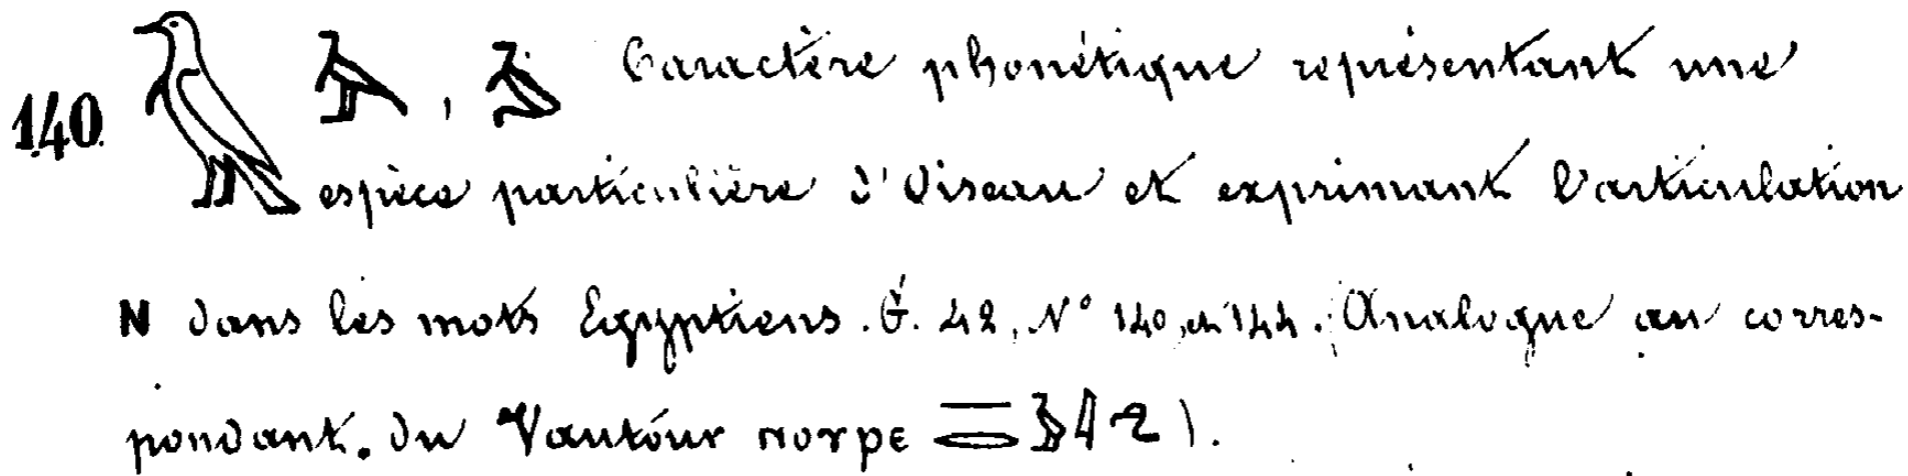 140. , Caractère phonétique représentant une
espèce particulière d'Oiseau et exprimant l'articulation
N dans les mots Egyptiens. G. 42, N° 140, et 144. Analogue au corres-
pondant. du Vautour ⲛⲟⲩⲣⲉ ).